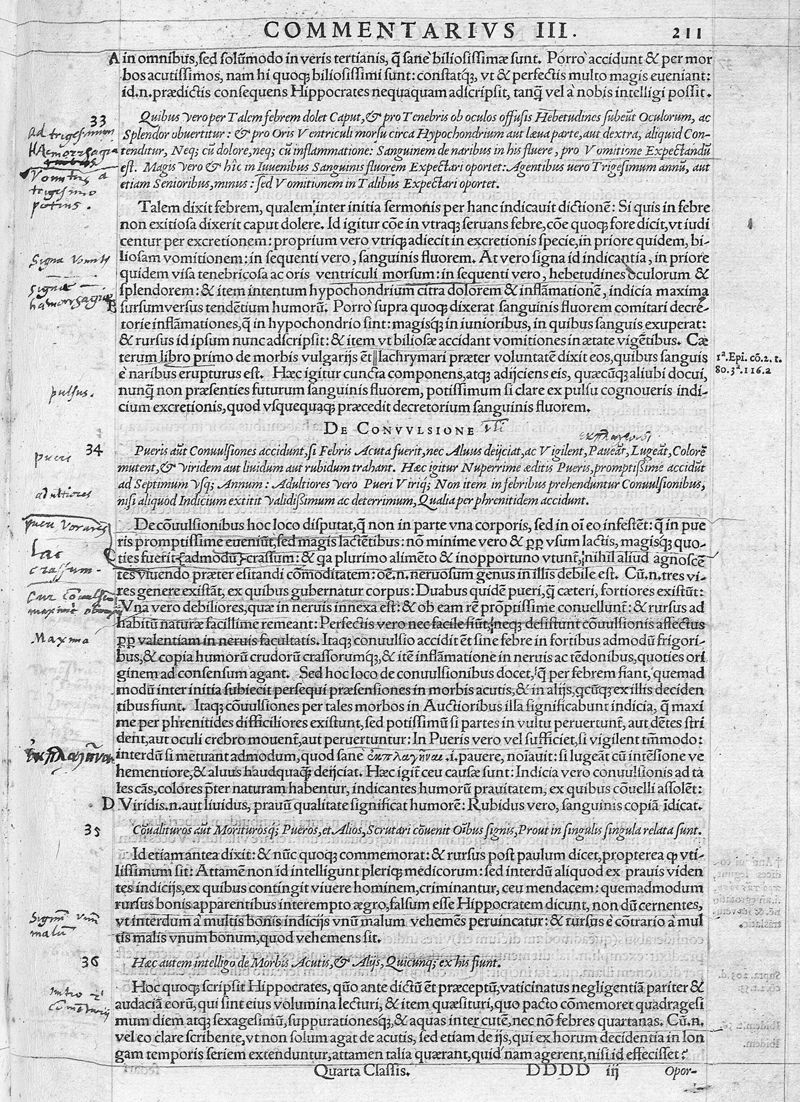 COMMENTARIVS III. 211
A in omnibus, sed solũmodo in veris tertianis, q̃ sanè biliosissimæ sunt. Porrò accidunt & per mor
bos acutissimos, nam hi quoq; biliosissimi sunt: constatq;, vt & perfectis multo magis eueniant:
id.n. prædictis consequens Hippocrates nequaquam adscripsit, tanq̃ vel à nobis intelligi possit.
33
Quibus vero per Talem febrem dolet Caput, & pro Tenebris ob oculos offusis Hebetudines subeũt Oculorum, ac
Splendor obuertitur: & pro Oris Ventriculi morsu circa Hypochondrium aut læua parte, aut dextra, aliquid Con-
tenditur, Neq; cũ dolore, neq; cũ inflammatione: Sanguinem de naribus in his fluere, pro Vomitione Expectandũ
est. Magis vero & hîc in Iuuenibus Sanguinis fluorem Expectari oportet: Agentibus uero Trigesimum annũ, aut
etiam Senioribus, minus: sed Vomitionem in Talibus Expectari oportet.
Talem dixit febrem, qualem inter initia sermonis per hanc indicauit dictionẽ: Si quis in febre
non exitiosa dixerit caput dolere. Id igitur cõe in vtraq; seruans febre, cõe quoq; fore dicit, vt iudi
centur per excretionem: proprium vero vtriq; adiecit in excretionis specie, in priore quidem, bi-
liosam vomitionem: in sequenti vero, sanguinis fluorem. At vero signa id indicantia, in priore
quidem visa tenebricosa ac oris ventriculi morsum: in sequenti vero, hebetudines oculorum &
splendorem: & item intentum hypochondrium citra dolorem & inflamationẽ, indicia maxima
B sursum versus tendẽtium humorũ. Porrò supra quoq; dixerat sanguinis fluorem comitari decre-
torie inflãmationes, q̃ in hypochondrio sint: magisq; in iunioribus, in quibus sanguis exuperat:
& rursus id ipsum nunc adscripsit: & item vt biliosæ accidant vomitiones in ætate vigẽtibus. Cæ
terum libro primo de morbis vulgarijs ẽt lachrymari præter voluntatẽ dixit eos, quibus sanguis
è naribus erupturus est. Hæc igitur cuncta componens, atq; adijciens eis, quæcũq; aliubi docui,
nunq̃ non præsenties futurum sanguinis fluorem, potissimum si clare ex pulsu cognoueris indi-
cium excretionis, quod vsquequaq; præcedit decretorium sanguinis fluorem.
1ª. Epi. cõ. 2. t.
80. 3ª. 116. 2
pulsus.
DE CONVVLSIONE
34
Pueris aũt Conuulsiones accidunt, si Febris Acuta fuerit, nec Aluus deijciat, ac Vigilent, Paueãt, Lugeãt, Colorẽ
mutent, & viridem aut liuidum aut rubidum trahant. Hæc igitur Nuperrime æditis Pueris, promptissime accidũt
ad Septimum vsq; Annum: Adultiores vero Pueri Viriq; Non item in febribus prehenduntur Conuulsionibus,
nisi aliquod Indicium extitit validissimum ac deterrimum, Qualia per phrenitidem accidunt.
pueris
adultiores
De cõuulsionibus hoc loco disputat, q̃ non in parte vna corporis, sed in oĩ eo infestẽt: q̃ in pue
ris promptissime eueniũt, sed magis lactẽtibus: nõ minime vero & ꝓp vsum lactis, magisq; quo-
C ties fuerit admodũ crassum: & qa plurimo alimẽto & inopportuno vtunt, nihil aliud agnoscẽ
tes viuendo præter esitandi cõmoditatem: oẽ.n. neruosum genus in illis debile est. Cũ.n. tres vi-
res genere existãt, ex quibus gubernatur corpus: Duabus quidẽ pueri, q̃ cæteri, fortiores existũt:
Vna vero debiliores, quæ in neruis innexa est: & ob eam rẽ prõptissime conuellunt: & rursus ad
habitũ naturæ facillime remeant: Perfectis vero nec facile fiũt, neq; desistunt cõuulsionis affectus
ꝓp valentiam in neruis facultatis. Itaq; conuulsio accidit ẽt sine febre in fortibus admodũ frigori-
bus, & copia humorũ crudorũ crassorumq;, & itẽ inflãmatione in neruis ac tẽdonibus, quoties ori
ginem ad consensum agant. Sed hoc loco de conuulsionibus docet, q̃ per febrem fiant, quemad
modũ inter initia subiecit persequi præsensiones in morbis acutis, & in alijs, qcũq; ex illis deciden
tibus fiunt. Itaq; cõuulsiones per tales morbos in Auctioribus illa significabunt indicia, q̃ maxi
me per phrenitides difficiliores existunt, sed potissimũ si partes in vultu peruertunt, aut dẽtes stri
dent, aut oculi crebro mouent, aut peruertuntur: In Pueris vero vel sufficiet, si vigilent tm̃modo:
interdũ si metuant admodum, quod sane ἐκπλαγῆναι .i. pauere, noĩauit: si lugeãt cũ intẽsione ve
hementiore, & aluus haudquaq̃ deijciat. Hæc igit̃ ceu causæ sunt: Indicia vero conuulsionis ad ta
les cãs, colores p̃ter naturam habentur, indicantes humorũ prauitatem, ex quibus cõuelli assolẽt:
D Viridis.n. aut liuidus, prauũ qualitate significat humorẽ: Rubidus vero, sanguinis copiã ĩdicat.
Lac
crassum.
Maxima
35
Cõualituros aũt Morituros q; Pueros, et Alios, Scrutari cõuenit Oĩbus signis, Prout in singulis singula relata sunt.
Id etiam antea dixit: & nũc quoq; commemorat: & rursus post paulum dicet, propterea ꝙ vti-
lissimum sit: Attamẽ non id intelligunt pleriq; medicorum: sed interdũ aliquod ex prauis viden
tes indicijs, ex quibus contingit viuere hominem, criminantur, ceu mendacem: quemadmodum
rursus bonis apparentibus interempto ægro, falsum esse Hippocratem dicunt, non dũ cernentes,
vt interdum à multis bonis indicijs vnũ malum vehemẽs peruincatur: & rursus è cõtrario à mul
tis malis vnum bonum, quod vehemens sit.
36
Hæc autem intelligo de Morbis Acutis, & Alijs, Quicunq; ex his fiunt.
Hoc quoq; scripsit Hippocrates, quo ante dictũ ẽt præceptũ, vaticinatus negligentiã pariter &
audaciã eorũ, qui sint eius volumina lecturi, & item quæsituri, quo pacto cõmemoret quadragesi
mum diem atq; sexagesimũ, suppurationesq;, & aquas inter cutẽ, nec nõ febres quartanas. Cũ.n.
vel eo clare scribente, vt non solum agat de acutis, sed etiam de ijs, qui ex horum decidentia in lon
gam temporis seriem extenduntur, attamen talia quærant, quid nam agerent, nisi id effecisset?
Quarta Classis. DDDD iij Opor-